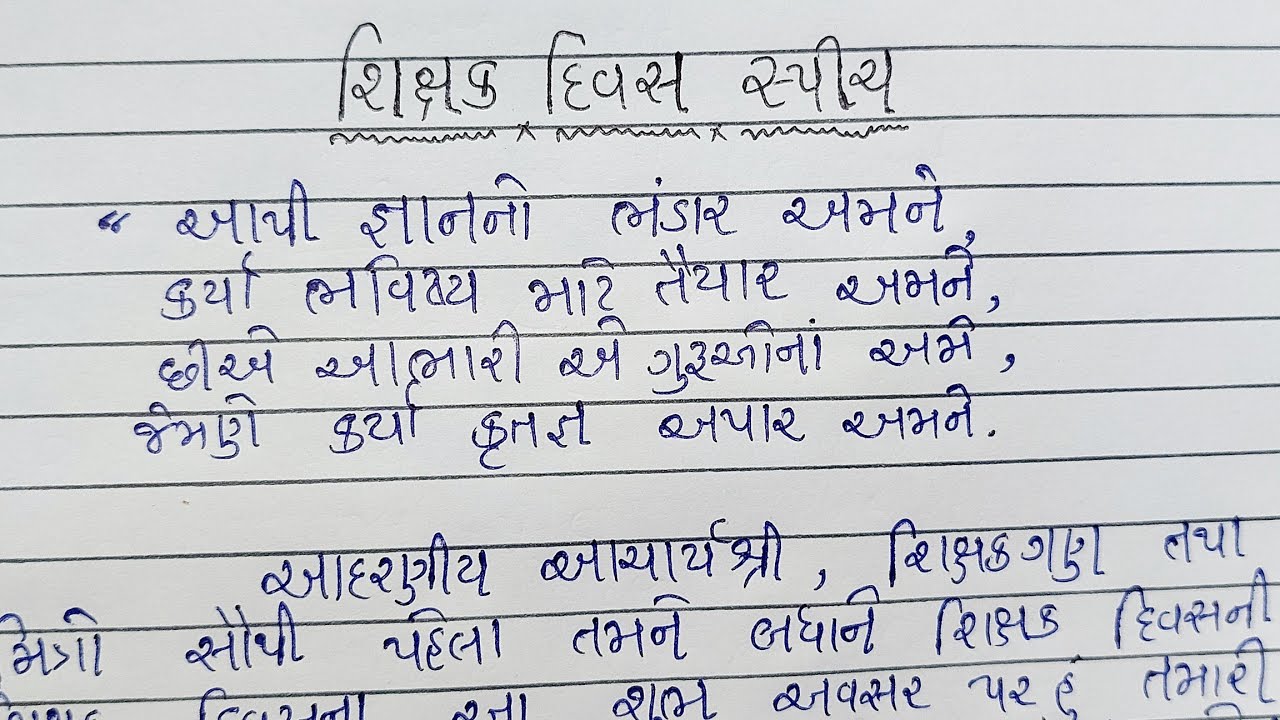 શિક્ષક દિવસ સ્પીચ
“ આપી જ્ઞાનનો ભંડાર અમને,
કર્યા ભવિષ્ય માટે તૈયાર અમને,
છીએ આભારી એ ગુરૂઓનાં અમે,
જેમણે કર્યા કૃતજ્ઞ અપાર અમને.
આદરણીય આચાર્યશ્રી, શિક્ષકગણ તથા
મિત્રો સૌથી પહેલા તમને બધાને શિક્ષક દિવસની
દિવસના આ શુભ અવસર પર હું તમારી